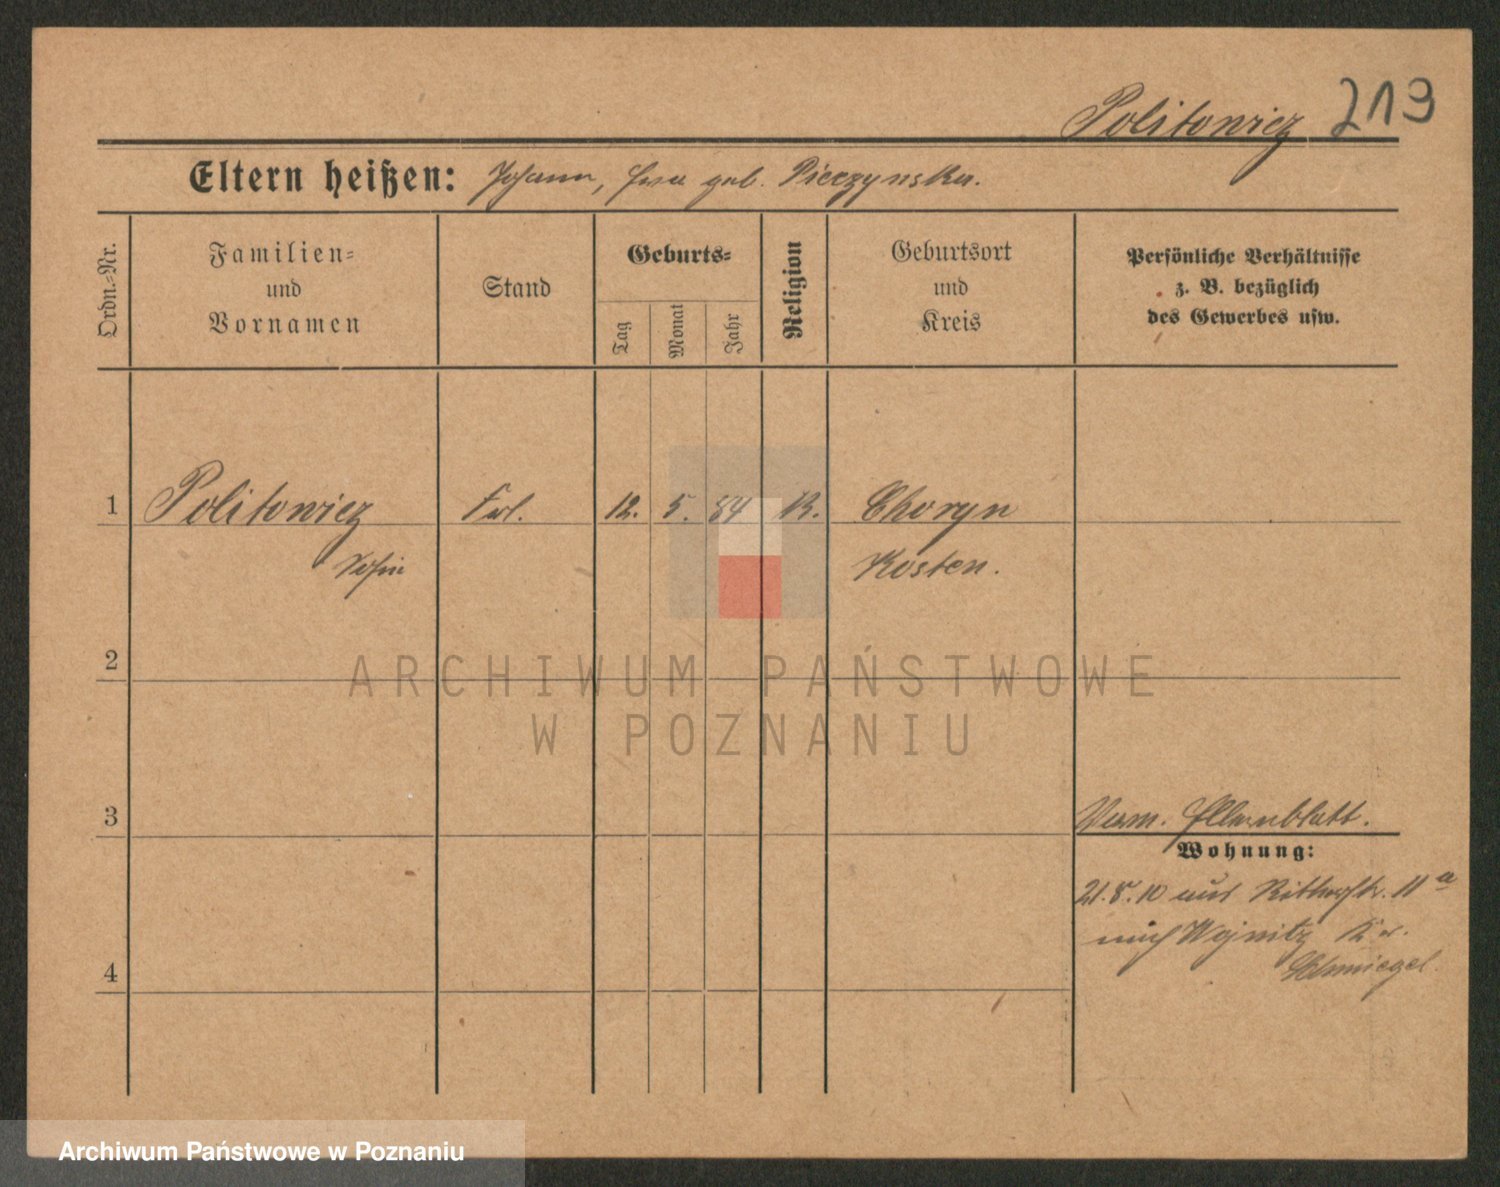 Politowicz 219
Eltern heißen: Johann, Eva geb. Pierzynska.
Ordn.-Nr.
Familien-
und
Vornamen
Stand
Geburts-
Tag
Monat
Jahr
Religion
Geburtsort
und
Kreis
Persönliche Verhältnisse
z. B. bezüglich
des Gewerbes usw.
1 Politowicz Frl. 12. 5. 84 K. Choryn
Sofie Kosten.
2
ARCHIWUM PAŃSTWOWE
W POZNANIU
3
Elternblatt.
Wohnung:
21.5.10 aus Ritterstr. 11 a
nach Wojnitz Kr.
Schmiegel
4
Archiwum Państwowe w Poznaniu